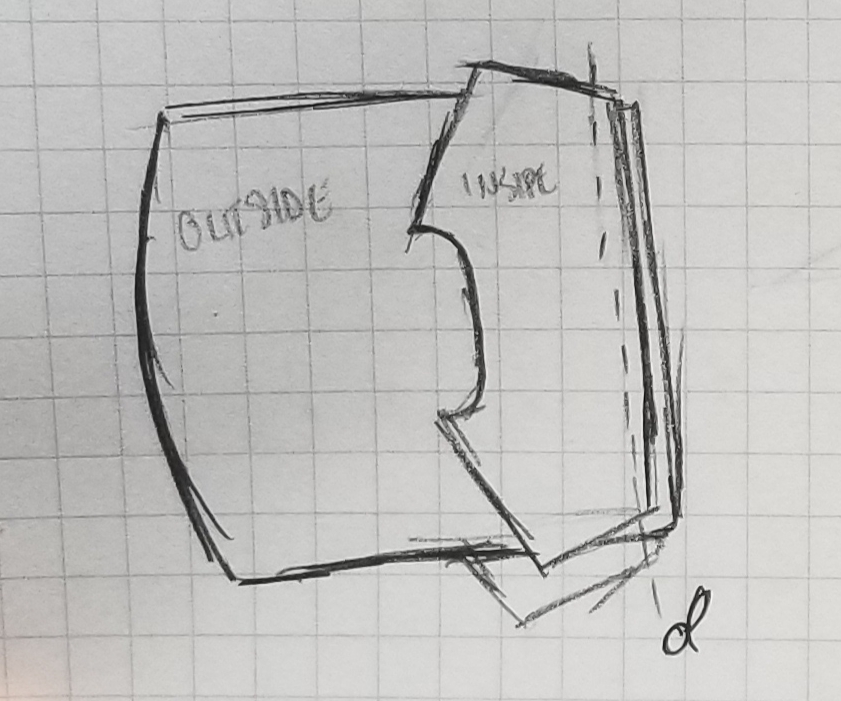 OUTSIDE
INSIDE
d